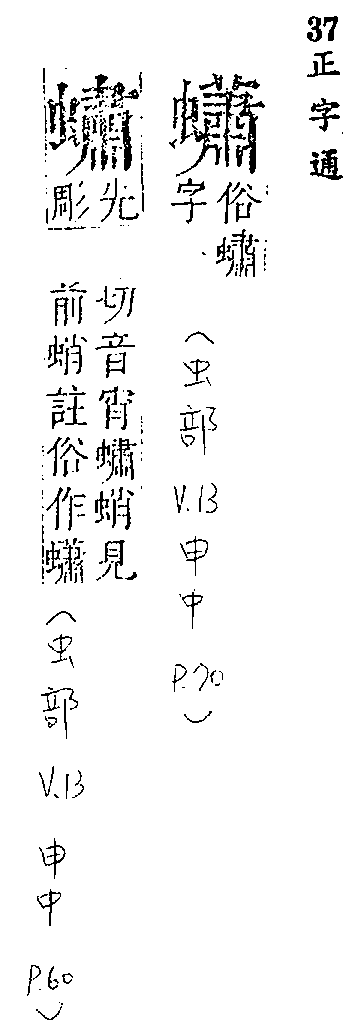 37正字通
蠨
俗蟰
字
（虫部 V.13 申中 P.70）
蟰
先
彫
切音宵蟰蛸見
前蛸註俗作蠨
（虫部 V.13 申中 P.60）